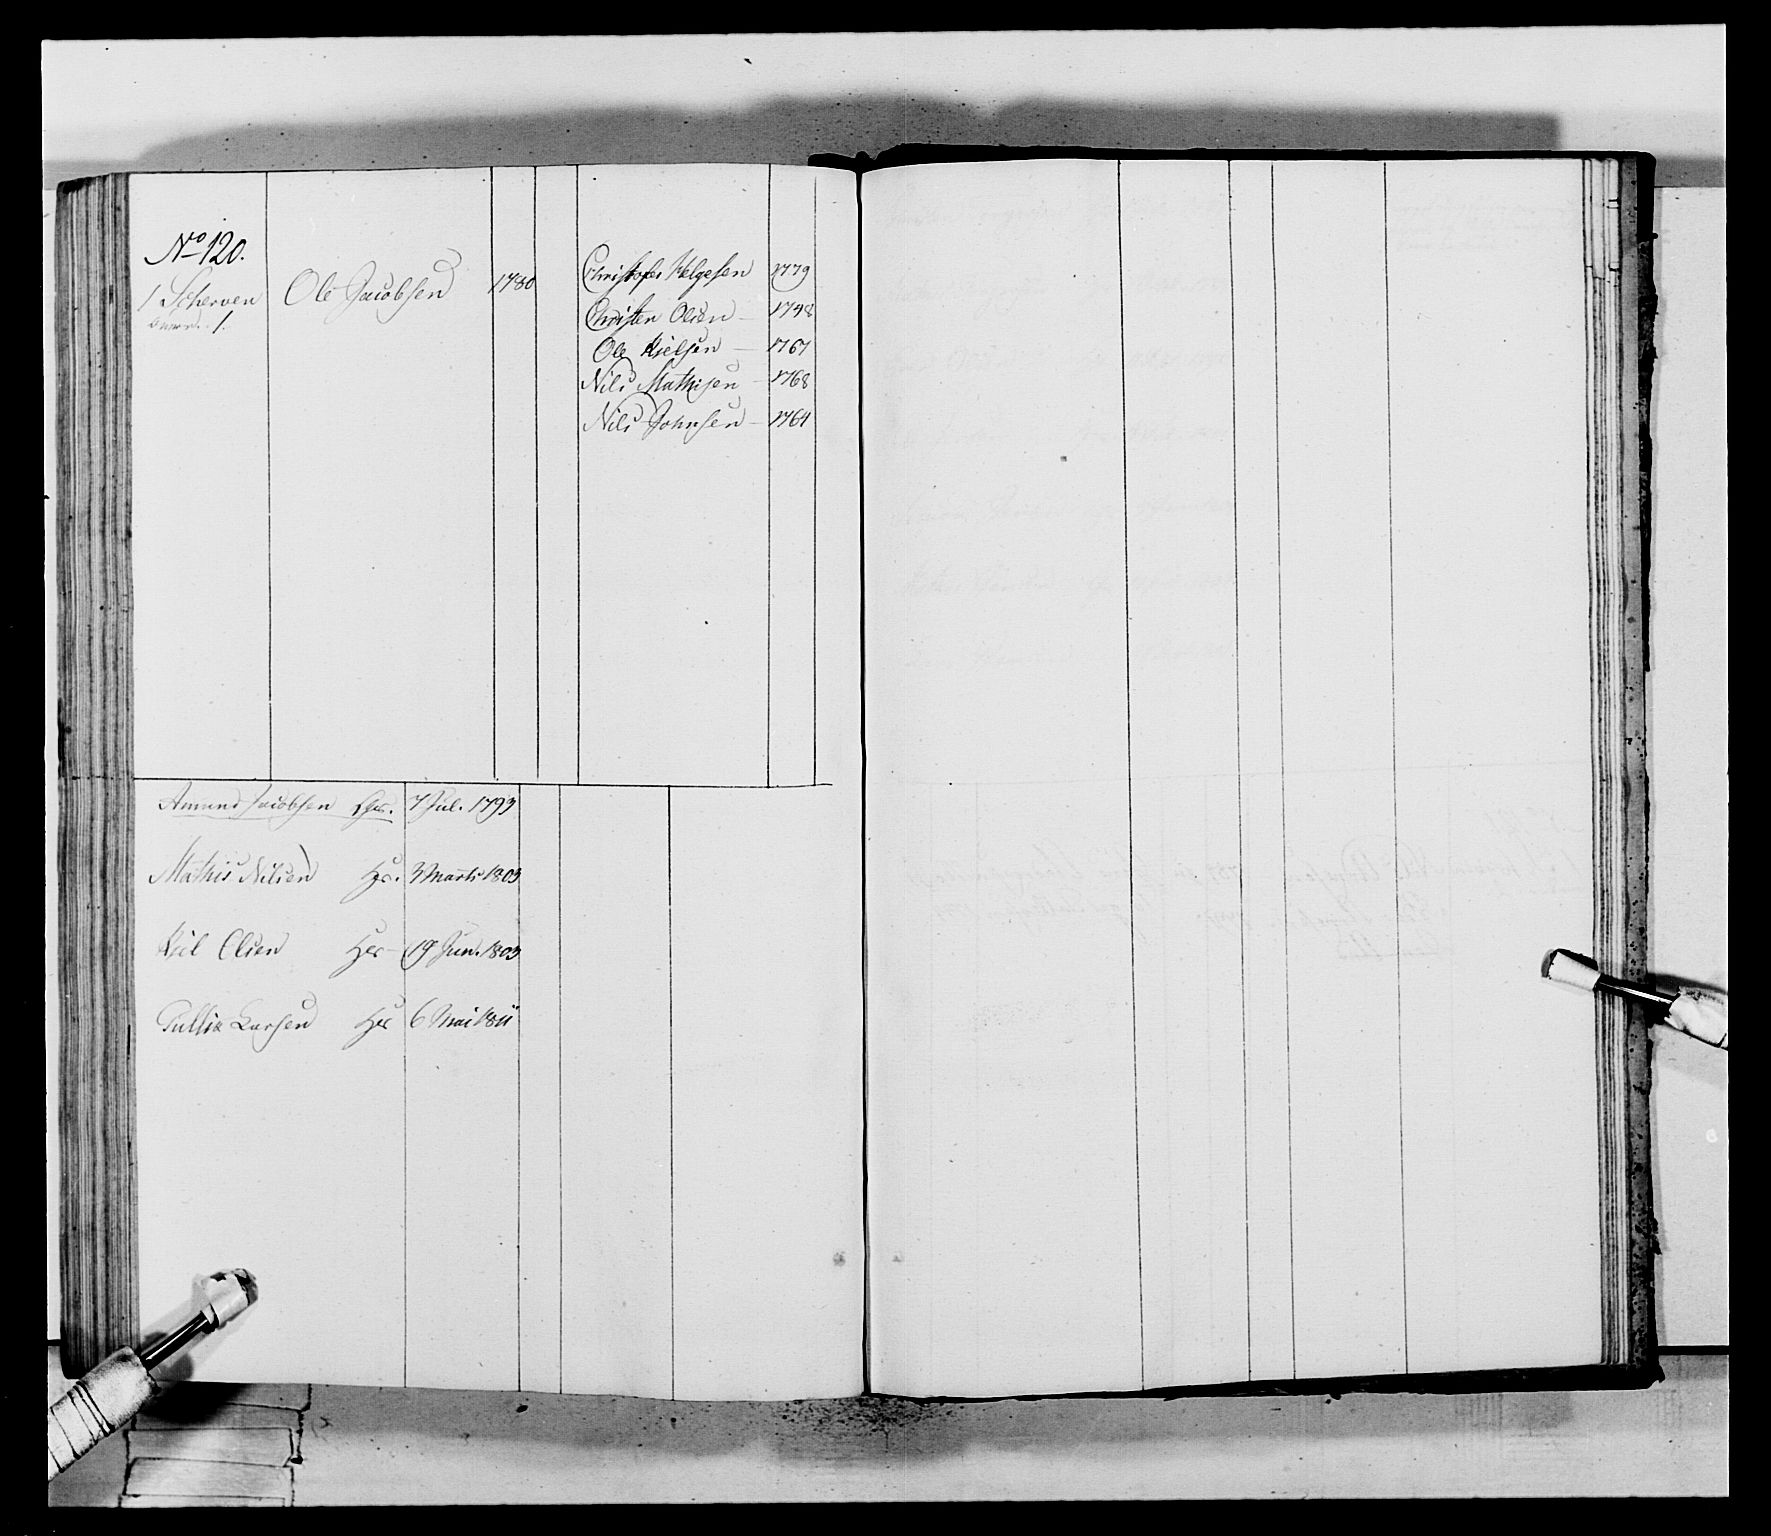 No 120.
1 Scherven Ole Jacobsen 1780
1.
Christofer Helgesen 1779
Christen Olsen - 1748
Ole Kielsen - 1767
Nils Mathisen - 1768
Nils Johnsen - 1764
Amund Jacobsen Hr. 7 Jul. 1793
Mathis Nilsen Hr. 3 Marti 1803
Kiel Olsen Hr - 19 Jun. 1803
Larsen Hr 6 Mai 1811